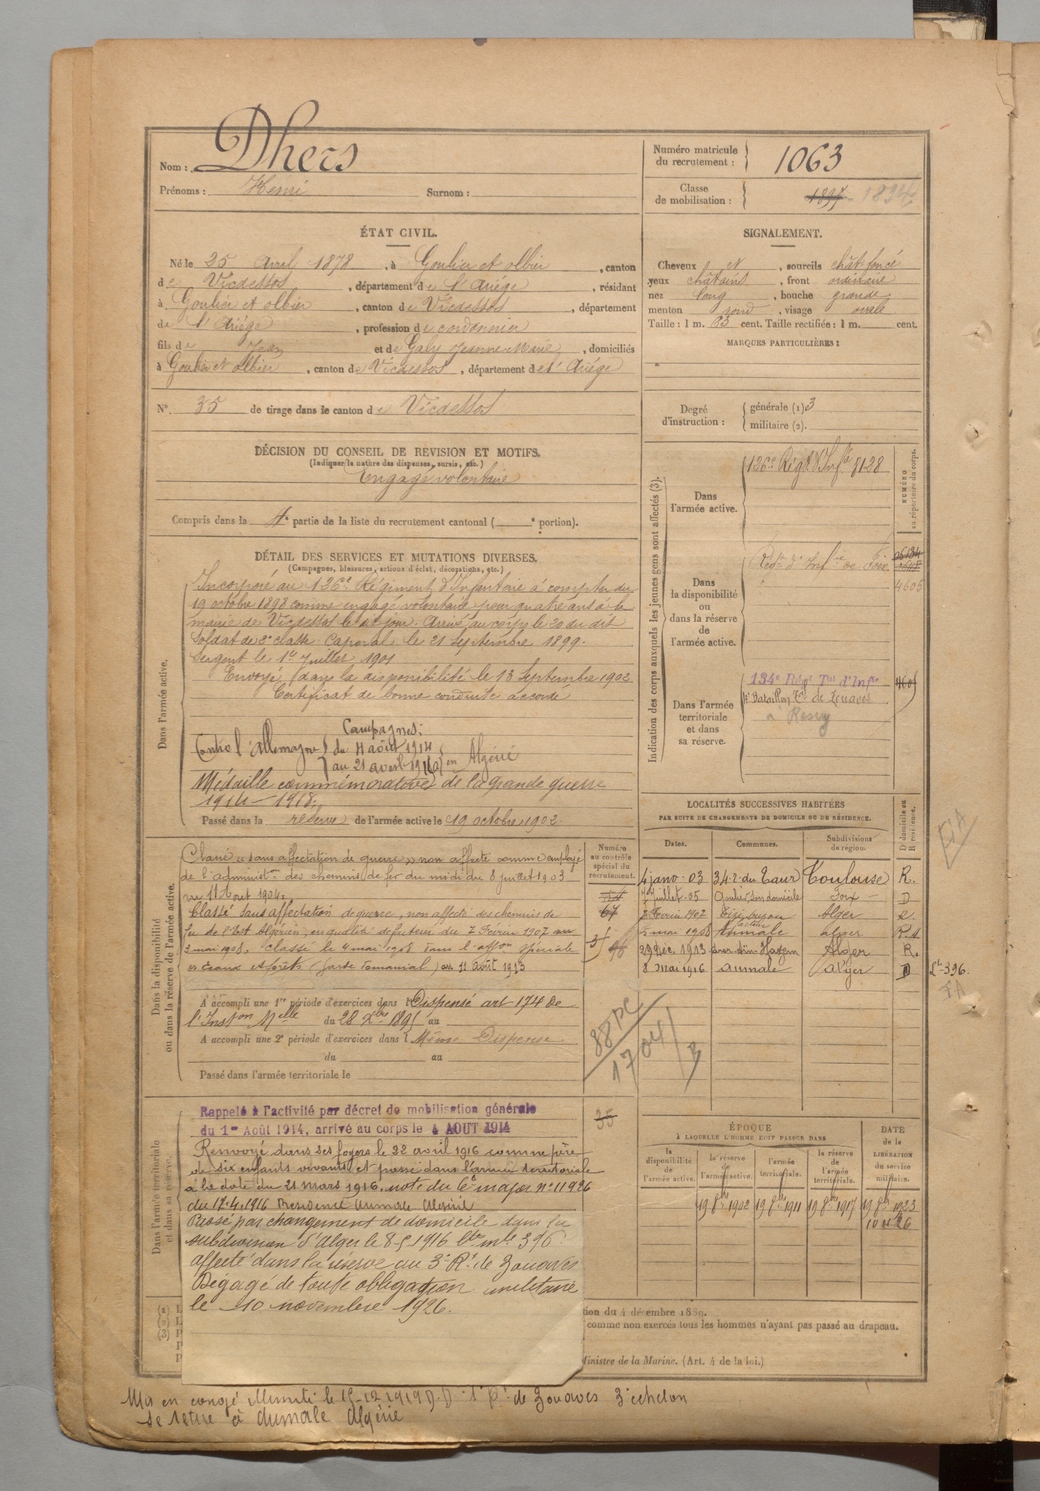 Nom : Dhers
Prénoms : Henri Surnom :
Numéro matricule du recrutement : 1063
Classe de mobilisation : 1897 1894
ÉTAT CIVIL.
Né le 25 Avril 1878, à Goulier et Olbier, canton
de Vicdessos, département de l'Ariége, résidant
à Goulier et Olbier, canton de Vicdessos, département
de l'Ariége, profession de cordonnier
fils de Jean et de Galy Jeanne Marie, domiciliés
à Goulier et Olbier, canton de Vicdessos, département de l'Ariége
N° 35 de tirage dans le canton de Vicdessos
SIGNALEMENT.
Cheveux et, sourcils chât foncé
yeux châtains, front ordinaire
nez long, bouche grande
menton rond, visage ovale
Taille : 1 m. cent. Taille rectifiée : 1 m. cent.
MARQUES PARTICULIÈRES :
Degré d'instruction : générale (1) 3
militaire (2).
DÉCISION DU CONSEIL DE REVISION ET MOTIFS.
(Indiquer la nature des dispenses, sursis, etc.)
Engagé volontaire
Compris dans la 4e partie de la liste du recrutement cantonal ( e portion).
DÉTAIL DES SERVICES ET MUTATIONS DIVERSES.
(Campagnes, blessures, actions d'éclat, décorations, etc.)
Dans l'armée active.
Incorporé au 126e Régiment d'Infanterie à compter du
19 octobre 1898 comme engagé volontaire pour quatre ans à la
mairie de Vicdessos le dit jour. Arrivé au corps le 20 du dit
Soldat de 2e classe. Caporal le 21 Septembre 1899.
Sergent le 1er Juillet 1901
Envoyé dans la disponibilité le 13 Septembre 1902
Certificat de bonne conduite accordé
Campagnes:
Contre l'Allemagne du 4 août 1914
au 21 avril 1916 en Algérie
Médaille commémorative de la grande guerre
1914-1918.
Passé dans la réserve de l'armée active le 19 octobre 1902
Indication des corps auxquels les jeunes gens sont affectés (3).
NUMÉRO au répertoire du corps.
Dans l'armée active.
126e Régt d'Infie 8128
Dans la disponibilité ou dans la réserve de l'armée active.
Régt d'Infie de Foix
4605
Dans l'armée territoriale et dans sa réserve.
134e Régt Tal d'Infie
Bataillon Tal de Zouaves
LOCALITÉS SUCCESSIVES HABITÉES
PAR SUITE DE CHANGEMENTS DE DOMICILE OU DE RÉSIDENCE.
Dates. Communes. Subdivisions de région. D domicile ou R résidence.
4 janv. 03 34 r. du Taur Toulouse R.
juillet 05 Foix D
7 Février 1907 Alger R.
mai 1908 Aumale Alger R.
29 Déc. 1913 Alger R.
8 Mai 1916 Aumale Alger D
Lt 396
Numéro au contrôle spécial du recrutement.
67
Dans la disponibilité ou dans la réserve de l'armée active.
Classé "sans affectation de guerre" non affecté comme employé
de l'administon des chemins de fer du midi du 8 juillet 1903
au 11 Aout 1904.
Classé sans affectation de guerre, non affecté des chemins de
fer de l'Est Algérien, en qualité de facteur du 7 Février 1907 au
2 mai 1908. Classé le 4 mai 1908 dans l'affon spéciale
eaux et forêts (garde domanial) au 11 août 1913
A accompli une 1re période d'exercices dans l Dispensé art 174 de
l'Inston Melle du 28 Xbre 1895 au
A accompli une 2e période d'exercices dans l Même Dispense
du au
Passé dans l'armée territoriale le
88 PC
1704
Dans l'armée territoriale et dans sa réserve.
Rappelé à l'activité par décret de mobilisation générale
du 1er Août 1914, arrivé au corps le 4 AOUT 1914
Renvoyé dans ses foyers le 22 avril 1916 comme père
de six enfants vivants et passé dans l'armée territoriale
à la date du 21 mars 1916. note du 6e major n° 11926
du 17.4.1916 Résidence Aumale Algérie
Passé par changement de domicile dans la
subdivision d'Alger le 8-5-1916 lte mle 396
affecté dans la réserve au 3e Rt de Zouaves
Dégagé de toute obligation militaire
le 10 novembre 1926.
35
ÉPOQUE
À LAQUELLE L'HOMME DOIT PASSER DANS
la disponibilité de l'armée active. la réserve de l'armée active. l'armée territoriale. la réserve de l'armée territoriale.
DATE de la LIBÉRATION du service militaire.
19 8bre 1902 19 8bre 1911 19 8bre 1917 19 8bre 1923
10 26
(1)
(2)
(3)
tion du 4 décembre 1889.
comme non exercés tous les hommes n'ayant pas passé au drapeau.
Ministre de la Marine. (Art. 4 de la loi.)
Mis en congé illimité le 15-12-1919 1er Rt de Zouaves 3e echelon
se retire à Aumale Algérie